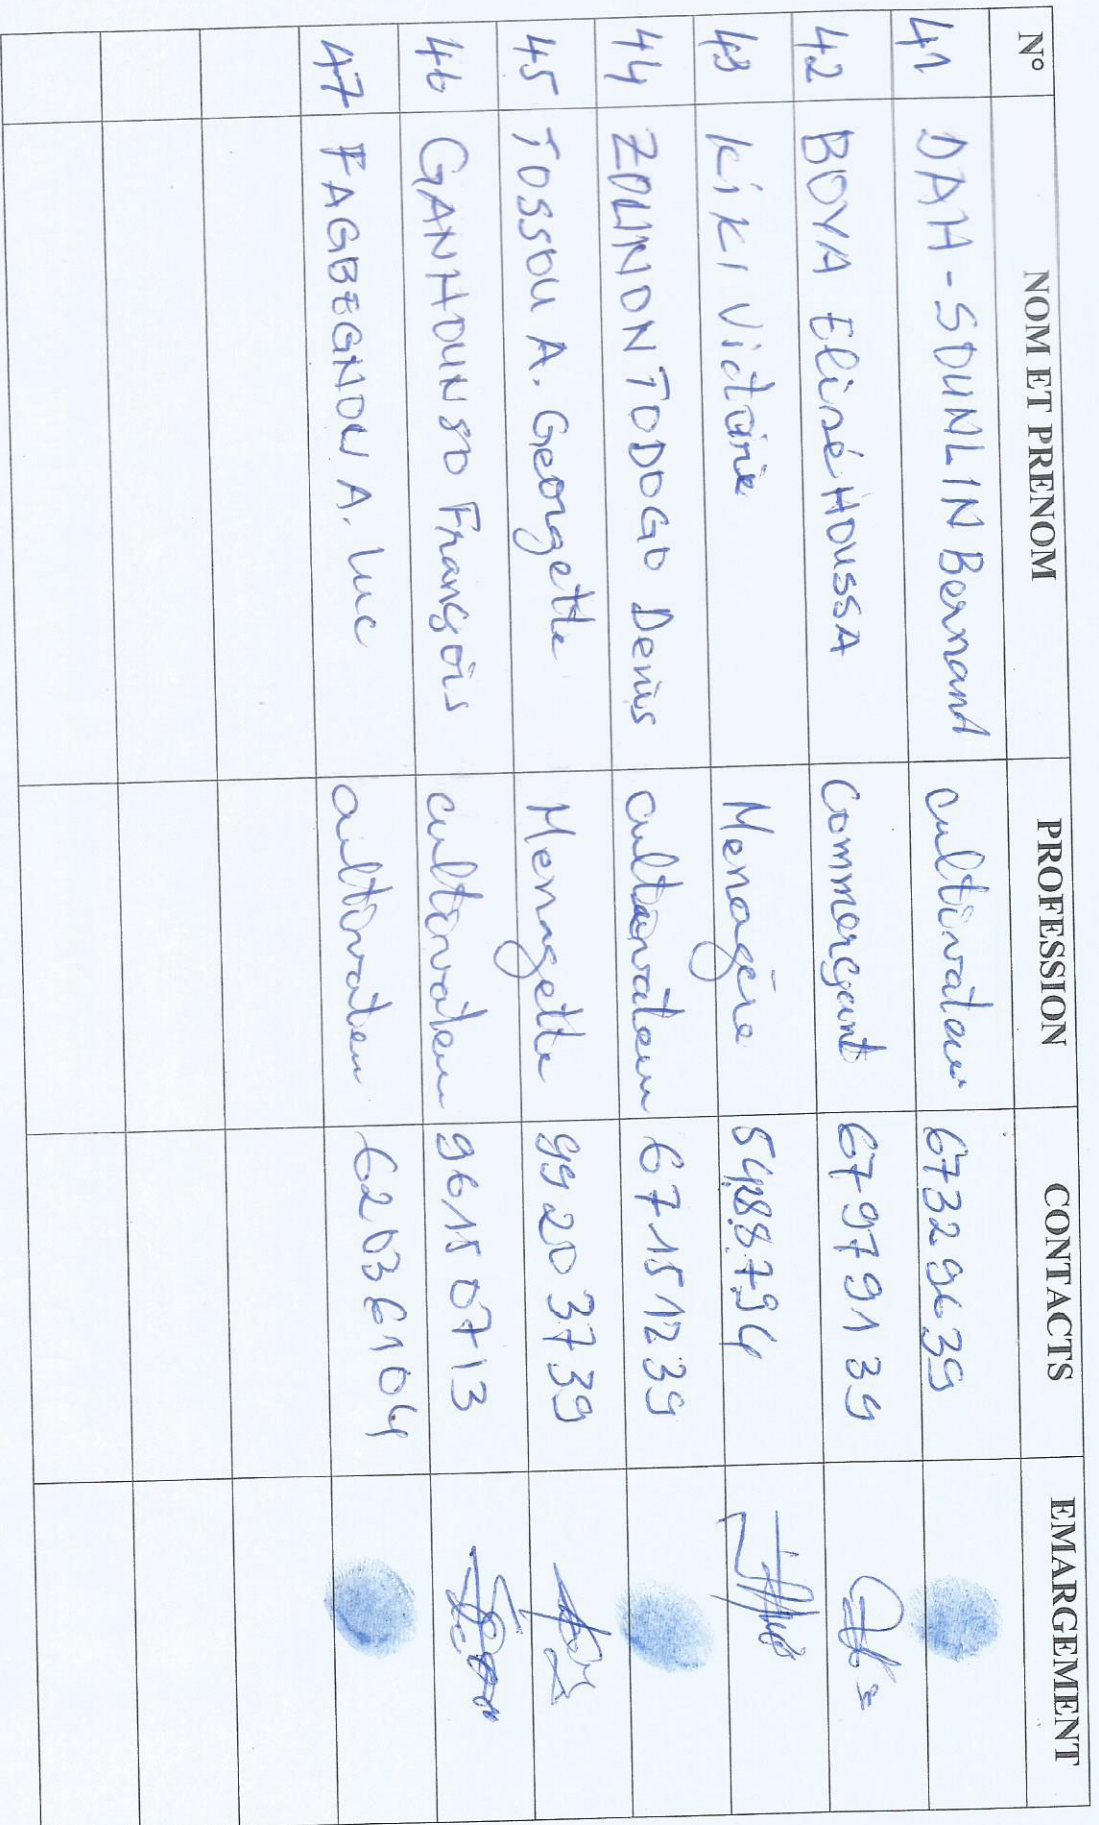 N° NOM ET PRENOM PROFESSION CONTACTS EMARGEMENT
41 DAH-SOUNLIN Bernard cultivateur 67329639
42 BOYA Elisé HOUSSA Commerçant 67979139
43 KiKi Victoire Menagère 54288794
44 ZOUNON TODOGO Denis cultivateur 67151239
45 TOSSOU A. Georgette Menagette 99203739
46 GANHOUNSO François cultivateur 96150713
47 FAGBEGNOU A. Luc cultivateur 62036104